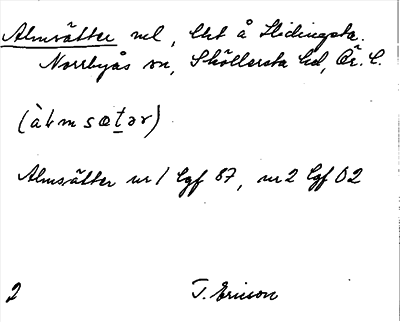 Almsätter nel, lht å Hidingsta.
Norrbyås sn, Sköllersta hd, Ör. l.
(àlmsætər)
Almsätter nr 1 lgf 87, nr 2 lgf 02
2 T. Ericson